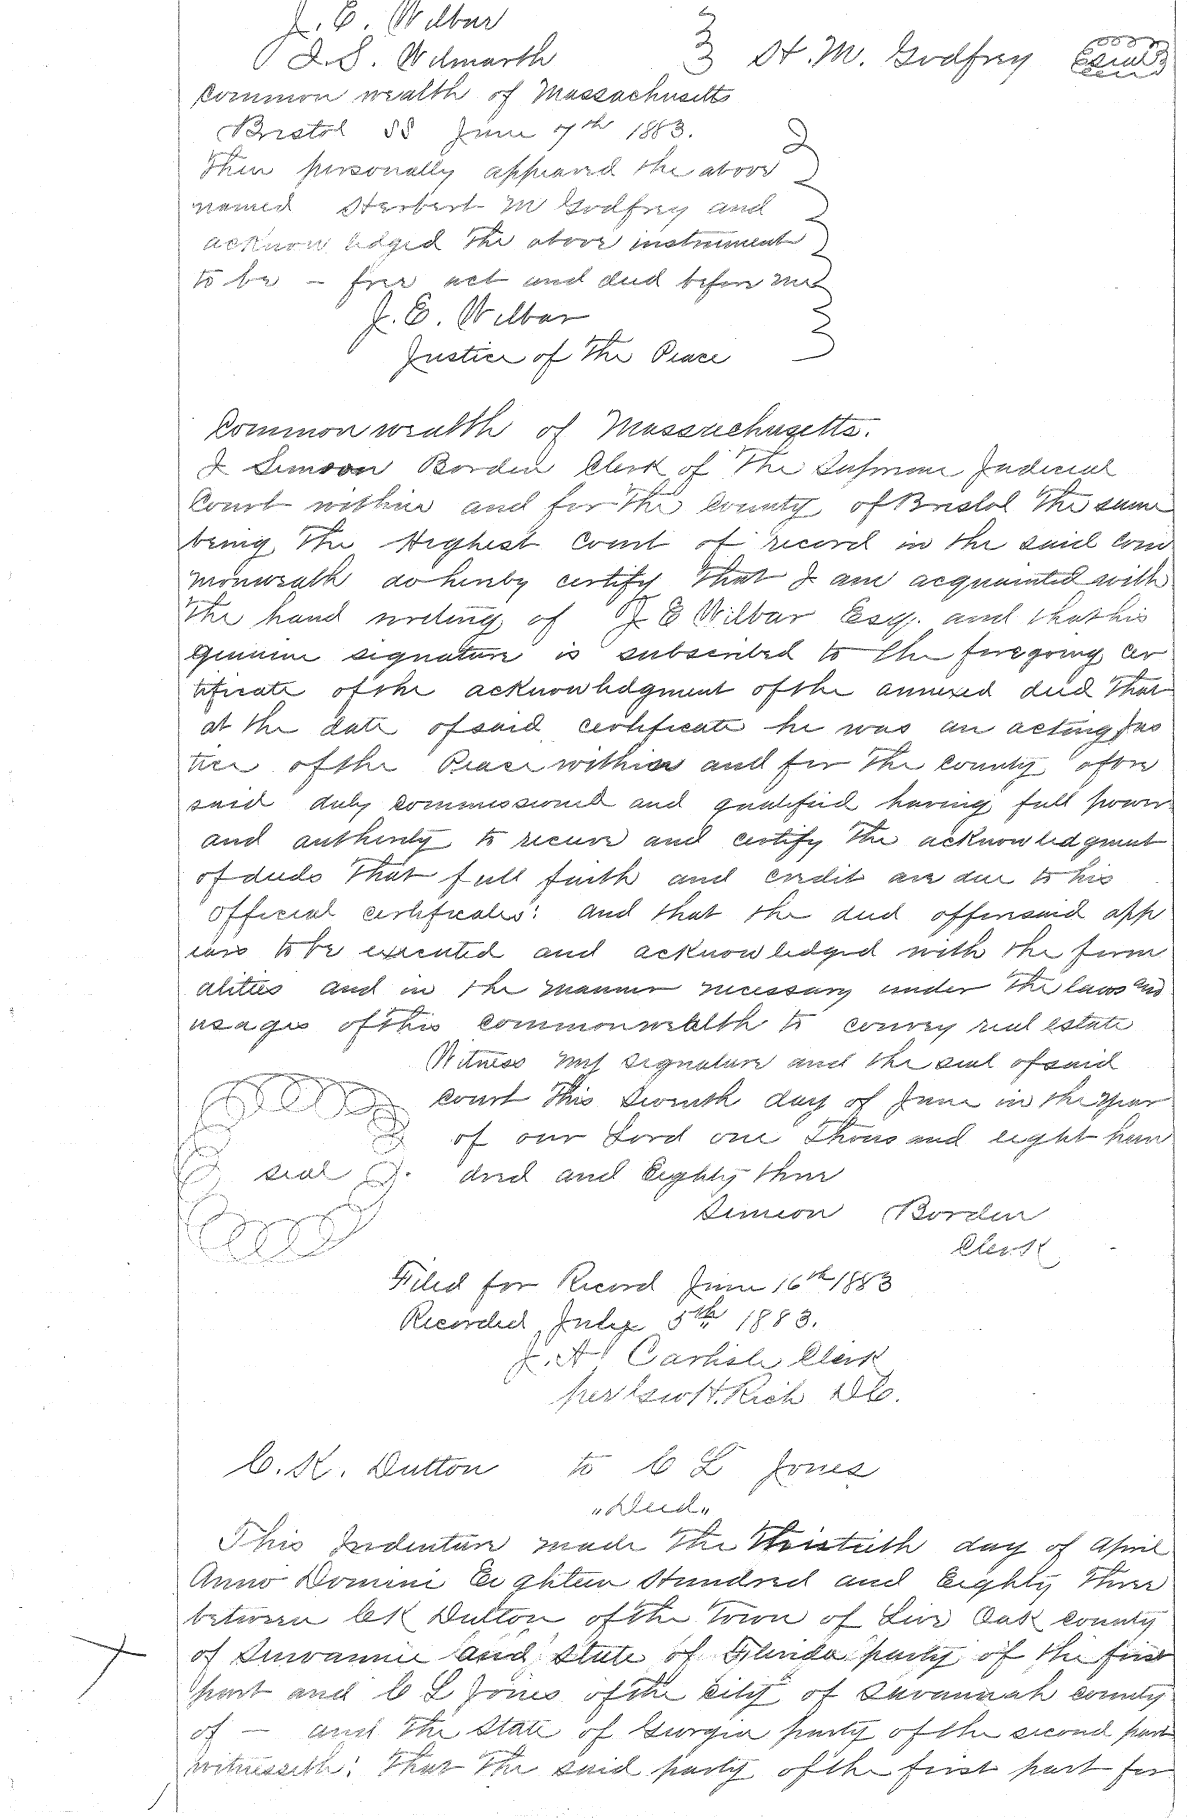 J. E. Wilbur
J. S. Wilmarth } H. M. Godfrey Seal
Common wealth of Massachusetts
Bristol SS June 7th 1883.
Then personally appeared the above
named Herbert M Godfrey and
acknow ledged the above instrument
to be - free act and deed before me
J. E. Wilbar
Justice of The Peace
Common wealth of Massachusetts.
I Simeon Borden Clerk of The Supreme Judicial
Court within and for The County of Bristol The same
being The Highest Court of record in the said Com
monwealth do hereby certify That I am acquainted with
The hand writing of J E Wilbar Esq. and that his
genuine signature is subscribed to The foregoing cer
tificate of the acknowledgment of the annexed deed That
at the date of said certificate he was an acting Jus
tice of the Peace within and for The County afore
said duly commissioned and qualified having full power
and authority to receive and certify The acknowledgment
of deeds That full faith and credit are due to his
official certificates: and that the deed afforesaid app
ears to be executed and acknowledged with the form
alities and in the manner necessary under The laws and
usages of this commonwealth to convey real estate
Witness my signature and the seal of said
court This Seventh day of June in the year
of our Lord one Thousand eight hun
seal dred and Eighty three
Simeon Borden
Clerk
Filed for Record June 16th 1883
Recorded July 5th 1883.
J. A. Carlisle Clerk
per H. Rich D C.
C. K. Dutton to C L Jones
"Deed"
This Indenture made The Thirtieth day of April
Anno Domini Eighteen Hundred and Eighty Three
between C K Dutton of the Town of Live Oak county
of Suwannee and State of Florida party of the first
part and C L Jones of the city of Savannah county
of - and The State of Georgia party of the second part
witnesseth: That The said party of the first part for